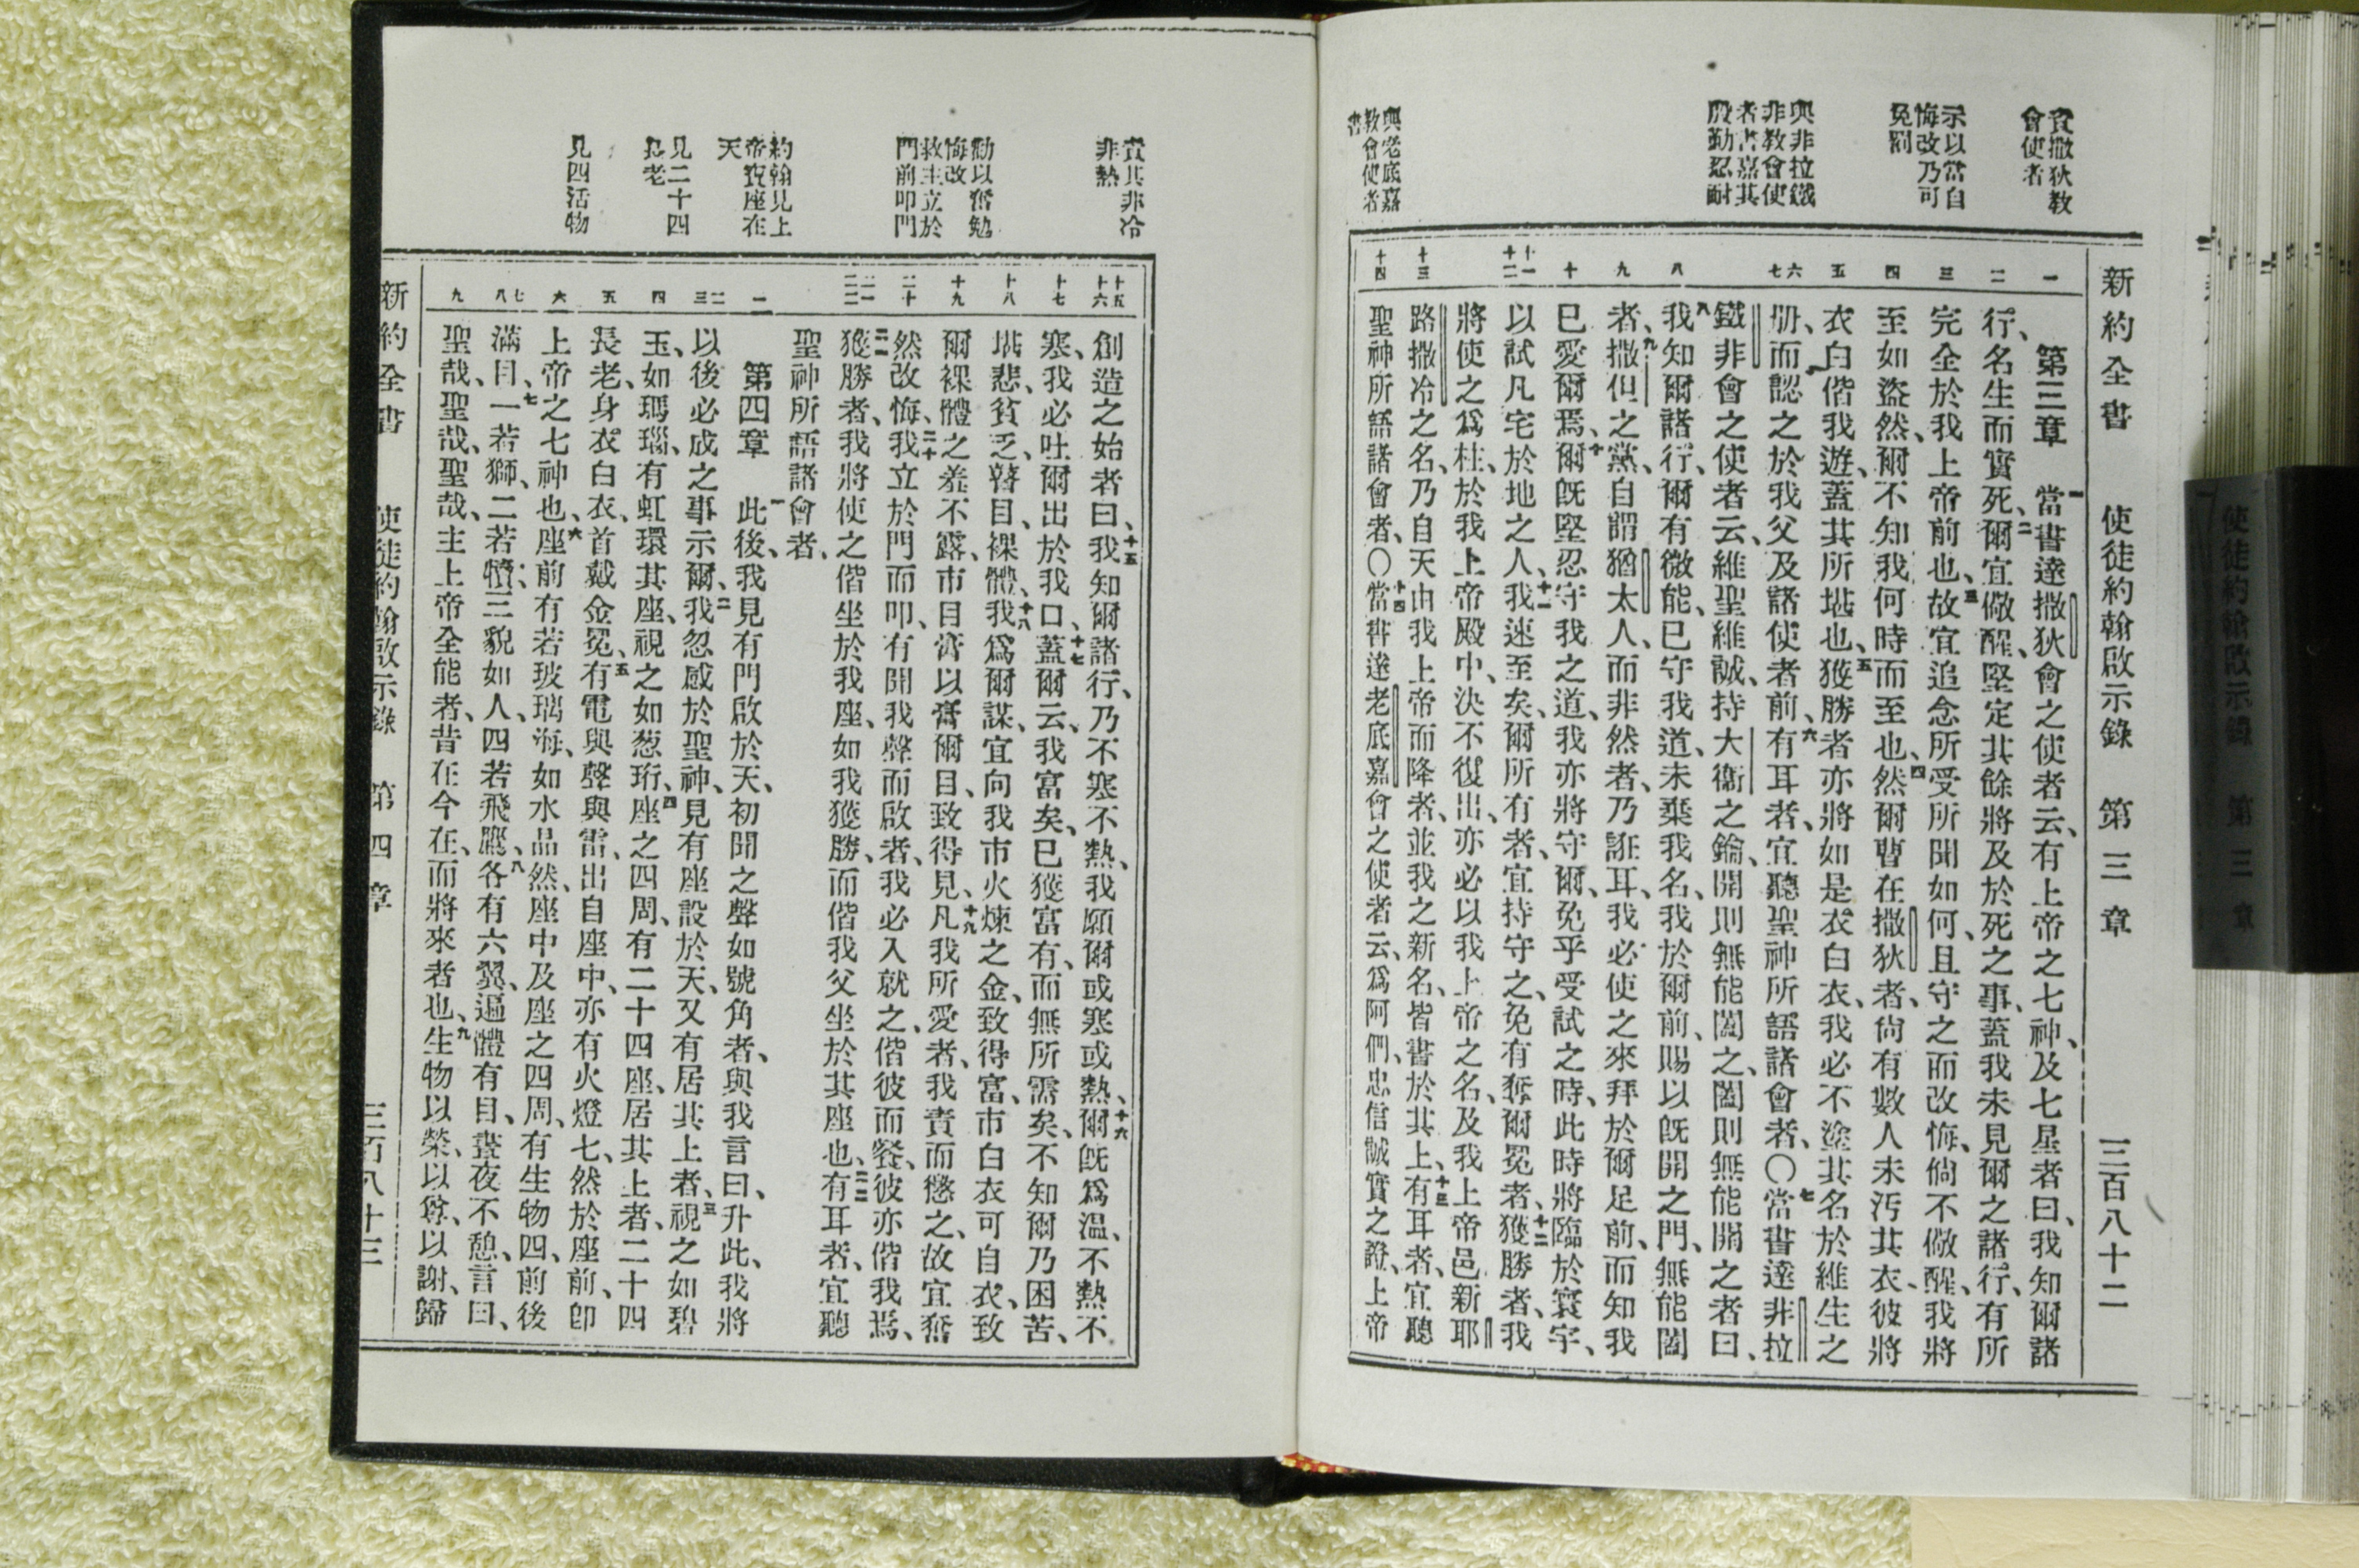 新約全書 使徒約翰啟示錄 第三章 三百八十二
責撒狄教
會使者
示以當自
悔改乃可
免罰
與非拉鐵
非教會使
者書嘉其
殷勤忍耐
與老底嘉
教會使者
書
一
二
三
四
五
六
七
八
九
十
十一
十二
十三
十四
第三章 一當書達撒狄會之使者云、有上帝之七神、及七星者曰、我知爾諸
行、名生而實死、二爾宜儆醒、堅定其餘將及於死之事、蓋我未見爾之諸行、有所
完全於我上帝前也、三故宜追念所受所聞如何、且守之而改悔、倘不儆醒、我將
至如盜然、爾不知我何時而至也、四然爾曹在撒狄者、尙有數人未污其衣、彼將
衣白偕我遊、蓋其所堪也、五獲勝者亦將如是衣白衣、我必不塗其名於維生之
册、而認之於我父及諸使者前、六有耳者、宜聽聖神所語諸會者、〇七當書達非拉
鐵非會之使者云、維聖維誠、持大衞之鑰、開則無能闔之、闔則無能開之者曰、
八我知爾諸行、爾有微能、已守我道、未棄我名、我於爾前、賜以旣開之門、無能闔
者、九撒但之黨、自謂猶太人、而非然者、乃誑耳、我必使之來拜於爾足前、而知我
已愛爾焉、十爾旣堅忍守我之道、我亦將守爾、免乎受試之時、此時將臨於寰宇、
以試凡宅於地之人、十一我速至矣、爾所有者、宜持守之、免有奪爾冕者、十二獲勝者、我
將使之爲柱、於我上帝殿中、決不復出、亦必以我上帝之名、及我上帝邑新耶
路撒冷之名、乃自天由我上帝而降者、並我之新名、皆書於其上、十三有耳者、宜聽
聖神所語諸會者、〇十四當書達老底嘉會之使者云、爲阿們、忠信誠實之證、上帝
責其非冷
非熱
勸以奮勉
悔改
救主立於
門前叩門
約翰見上
帝寶座在
天
見二十四
長老
見四活物
十五
十六
十七
十八
十九
二十
二一
二二
一
二
三
四
五
六
七
八
九
創造之始者曰、十五我知爾諸行、乃不寒不熱、我願爾或寒或熱、十六爾旣爲温、不熱不
寒、我必吐爾出於我口、十七蓋爾云、我富矣、已獲富有、而無所需矣、不知爾乃困苦、
堪悲、貧乏、瞽目、裸體、十八我爲爾謀、宜向我市火煉之金、致得富、市白衣可自衣、致
爾裸體之羞不露、市目膏以膏爾目、致得見、十九凡我所愛者、我責而懲之、故宜奮
然改悔、二十我立於門而叩、有聞我聲而啟者、我必入就之、偕彼而餐、彼亦偕我焉、
二一獲勝者、我將使之偕坐於我座、如我獲勝、而偕我父坐於其座也、二二有耳者、宜聽
聖神所語諸會者、
第四章 一此後、我見有門啟於天、初聞之聲如號角者、與我言曰、升此、我將
以後必成之事示爾、二我忽感於聖神、見有座設於天、又有居其上者、三視之如碧
玉、如瑪瑙、有虹環其座、視之如葱珩、四座之四周、有二十四座、居其上者、二十四
長老、身衣白衣、首戴金冕、五有電與聲與雷、出自座中、亦有火燈七、然於座前、卽
上帝之七神也、六座前有若玻璃海、如水晶然、座中及座之四周、有生物四、前後
滿目、七一若獅、二若犢、三貌如人、四若飛鷹、八各有六翼、遍體有目、晝夜不憩、言曰、
聖哉、聖哉、聖哉、主上帝全能者、昔在今在、而將來者也、九生物以榮、以尊、以謝、歸
新約全書 使徒約翰啟示錄 第四章 三百八十三